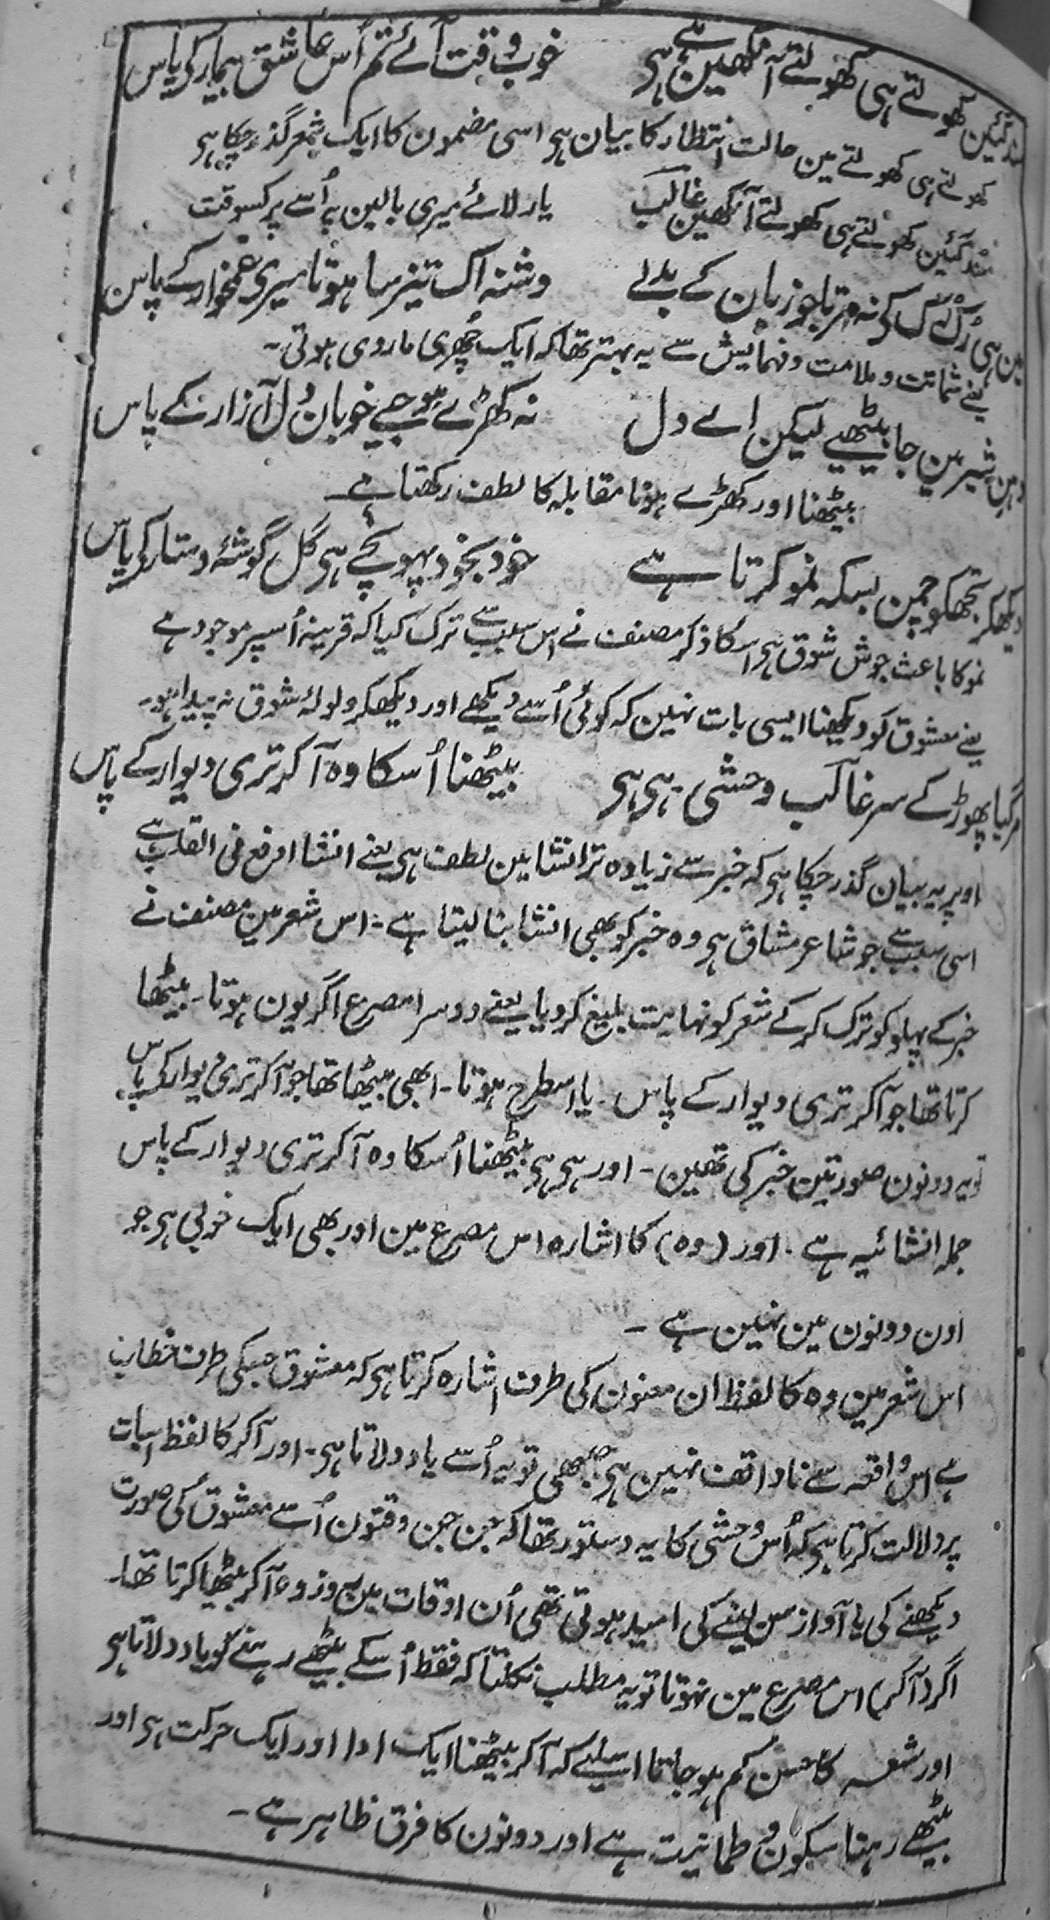 مندگئین کھولتے ہی کھولتے آنکھین ہے ہے خوب وقت آئے تم اُس عاشق بیمار کی پاس
کھولتے ہی کھولتے مین حالت انتظار کا بیان ہی اسی مضمون کا ایک شعر گذر چکا ہی
مُندگئین کھولتے ہی کھولتے آنکھین غالب یار لائے میری بالین پہ اُسے پر کسوقت
مین بھی رُک رُک کی نہ مرتا جو زبان کے بدلے دشنہ اک تیز سا ہوتا میری غمخوار کے پاس
یعنے شماتت و ملامت و نہمایش سے یہ بہتر تھا کہ ایک چُھری ماردی ہوتی۔
دہن شیر مین جا بیٹھیے لیکن اے دل نہ کھڑے ہوجیے خوبان دل آزار کے پاس
بیٹھنا اور کھڑے ہونا مقابلہ کا لطف رکھتا ہے۔
دیکھکر تجھکو چمن بسکہ نمو کرتا ہے خود بخود پہونچے ہی گل گوشۂ دستار کی پاس
نمو کا باعث جوش شوق ہی اسکا ذکر مصنف نے اس سبب سے ترک کیا کہ قرینہ اُسپر موجود ہے
یعنے معشوق کو دیکھنا ایسی بات نہین کہ کوئی اُسے دیکھے اور دیکھکر ولولۂ شوق نہ پیدا ہو۔
مرگیا پھوڑ کے سر غالب وحشی ہی ہی بیٹھنا اُسکا وہ آکر تری دیوار کے پاس
اوپر یہ بیان گذر چکا ہی کہ خبر سے زیادہ تر انشا مین لطف ہی یعنے انشا اوقع فی القلب ہے
اسی سبب سے جو شاعر مشاق ہی وہ خبر کو بھی انشا بنا لیتا ہے۔ اس شعر مین مصنف نے
خبر کے پہلو کو ترک کرکے شعر کو نہایت بلیغ کر دیا یعنے دوسرا مصرع اگر یون ہوتا۔ بیٹھا
کرتا تھا جو آکر تری دیوار کے پاس۔ یا اسطرح ہوتا۔ ابھی بیٹھا تھا جو آکر تری دیوار کی پاس
تو یہ دونون صورتین خبر کی تھین۔ اور ہی ہی بیٹھنا اُسکا وہ آکر تری دیوار کے پاس
جملہ انشائیہ ہے۔ اور (وہ) کا اشارہ اس مصرع مین اور بھی ایک خوبی ہی جو
اون دونون مین نہین ہے۔
اس شعر مین وہ کا لفظ ان معنون کی طرف اشارہ کرتا ہی کہ معشوق جسکی طرف خطاب
ہے اُس واقعہ سے ناواقف نہین ہی جبھی تو یہ اُسے یاد دلاتا ہی۔ اور آکر کا لفظ اسبات
پر دلالت کرتا ہی کہ اُس وحشی کا یہ دستور تھا کہ جن جن وقتون اُسے معشوق کی صورت
دیکھنے کی یا آواز سن لینے کی امید ہوتی تھی اُن اوقات مین وہ آکر بیٹھا کرتا تھا۔
اگر (آکر) اس مصرع مین نہوتا تو یہ مطلب نکلتا کہ فقط اُسکے بیٹھے رہنے کو یاد دلاتا ہی
اور شعر کا حسن کم ہو جاتا اسلیے کہ آکر بیٹھنا ایک ادا اور ایک حرکت ہی اور
بیٹھے رہنا سکون و طمانیت ہے اور دونون کا فرق ظاہر ہے۔